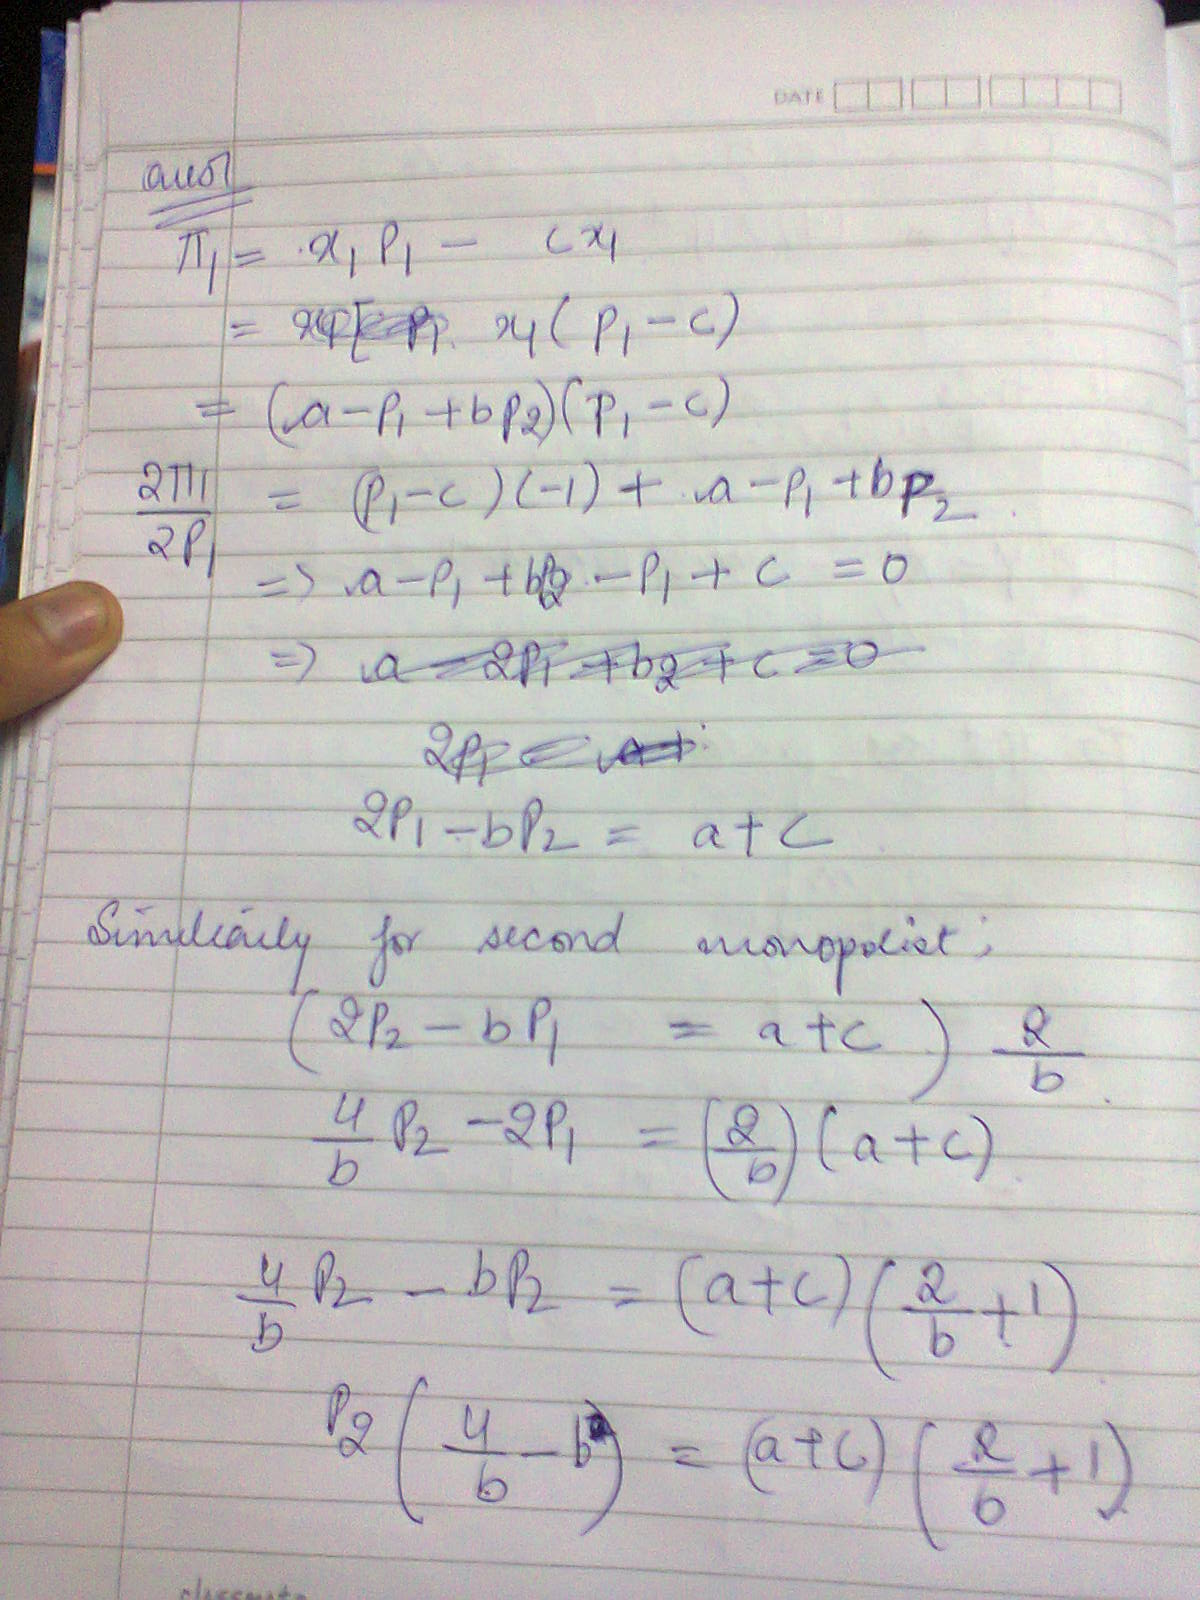 DATE
π₁ = x₁P₁ − cx₁
= x₁(P₁−c)
= (a−P₁+bP₂)(P₁−c)
2π₁/2P₁ = (P₁−c)(−1) + a−P₁+bP₂
=> a−P₁+bP₂−P₁+c = 0
=> a−2P₁+b2+c=0
2P₁ = a+
2P₁−bP₂ = a+c
Similarly for second monopolist;
(2P₂−bP₁ = a+c) 2/b
4/b P₂ −2P₁ = (2/b)(a+c)
4/b P₂ − bP₂ = (a+c)(2/b+1)
P₂(4/b−b) = (a+c)(2/b+1)
classmate